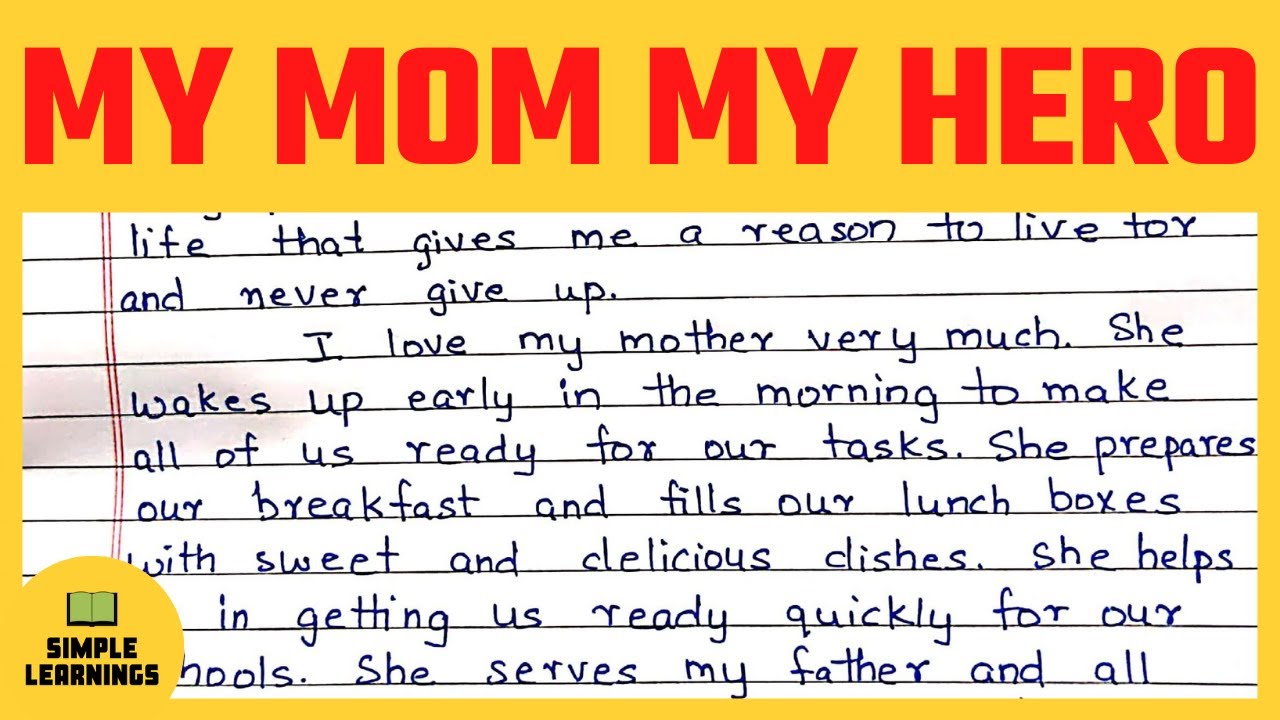 MY MOM MY HERO
life that gives me a reason to live for
and never give up.
I love my mother very much. She
wakes up early in the morning to make
all of us ready for our tasks. She prepares
our breakfast and fills our lunch boxes
with sweet and delicious dishes. She helps
in getting us ready quickly for our
hools. She serves my father and all
SIMPLE
LEARNINGS